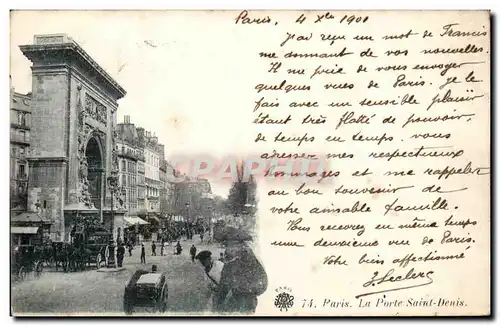 Paris, 4 Xbre 1901
J'ai reçu un mot de Francis
me donnant de vos nouvelles.
Il me prie de vous envoyer
quelques vues de Paris. Je le
fais avec un sensible plaisir
étant très flatté de pouvoir,
de temps en temps, vous
adresser mes respectueux
hommages et me rappeler
au bon souvenir de
votre aimable famille.
Vous recevrez en même temps
une deuxième vue de Paris.
Votre bien affectionné
J. Leclerc
CPAPHIL
74. Paris. La Porte Saint-Denis.